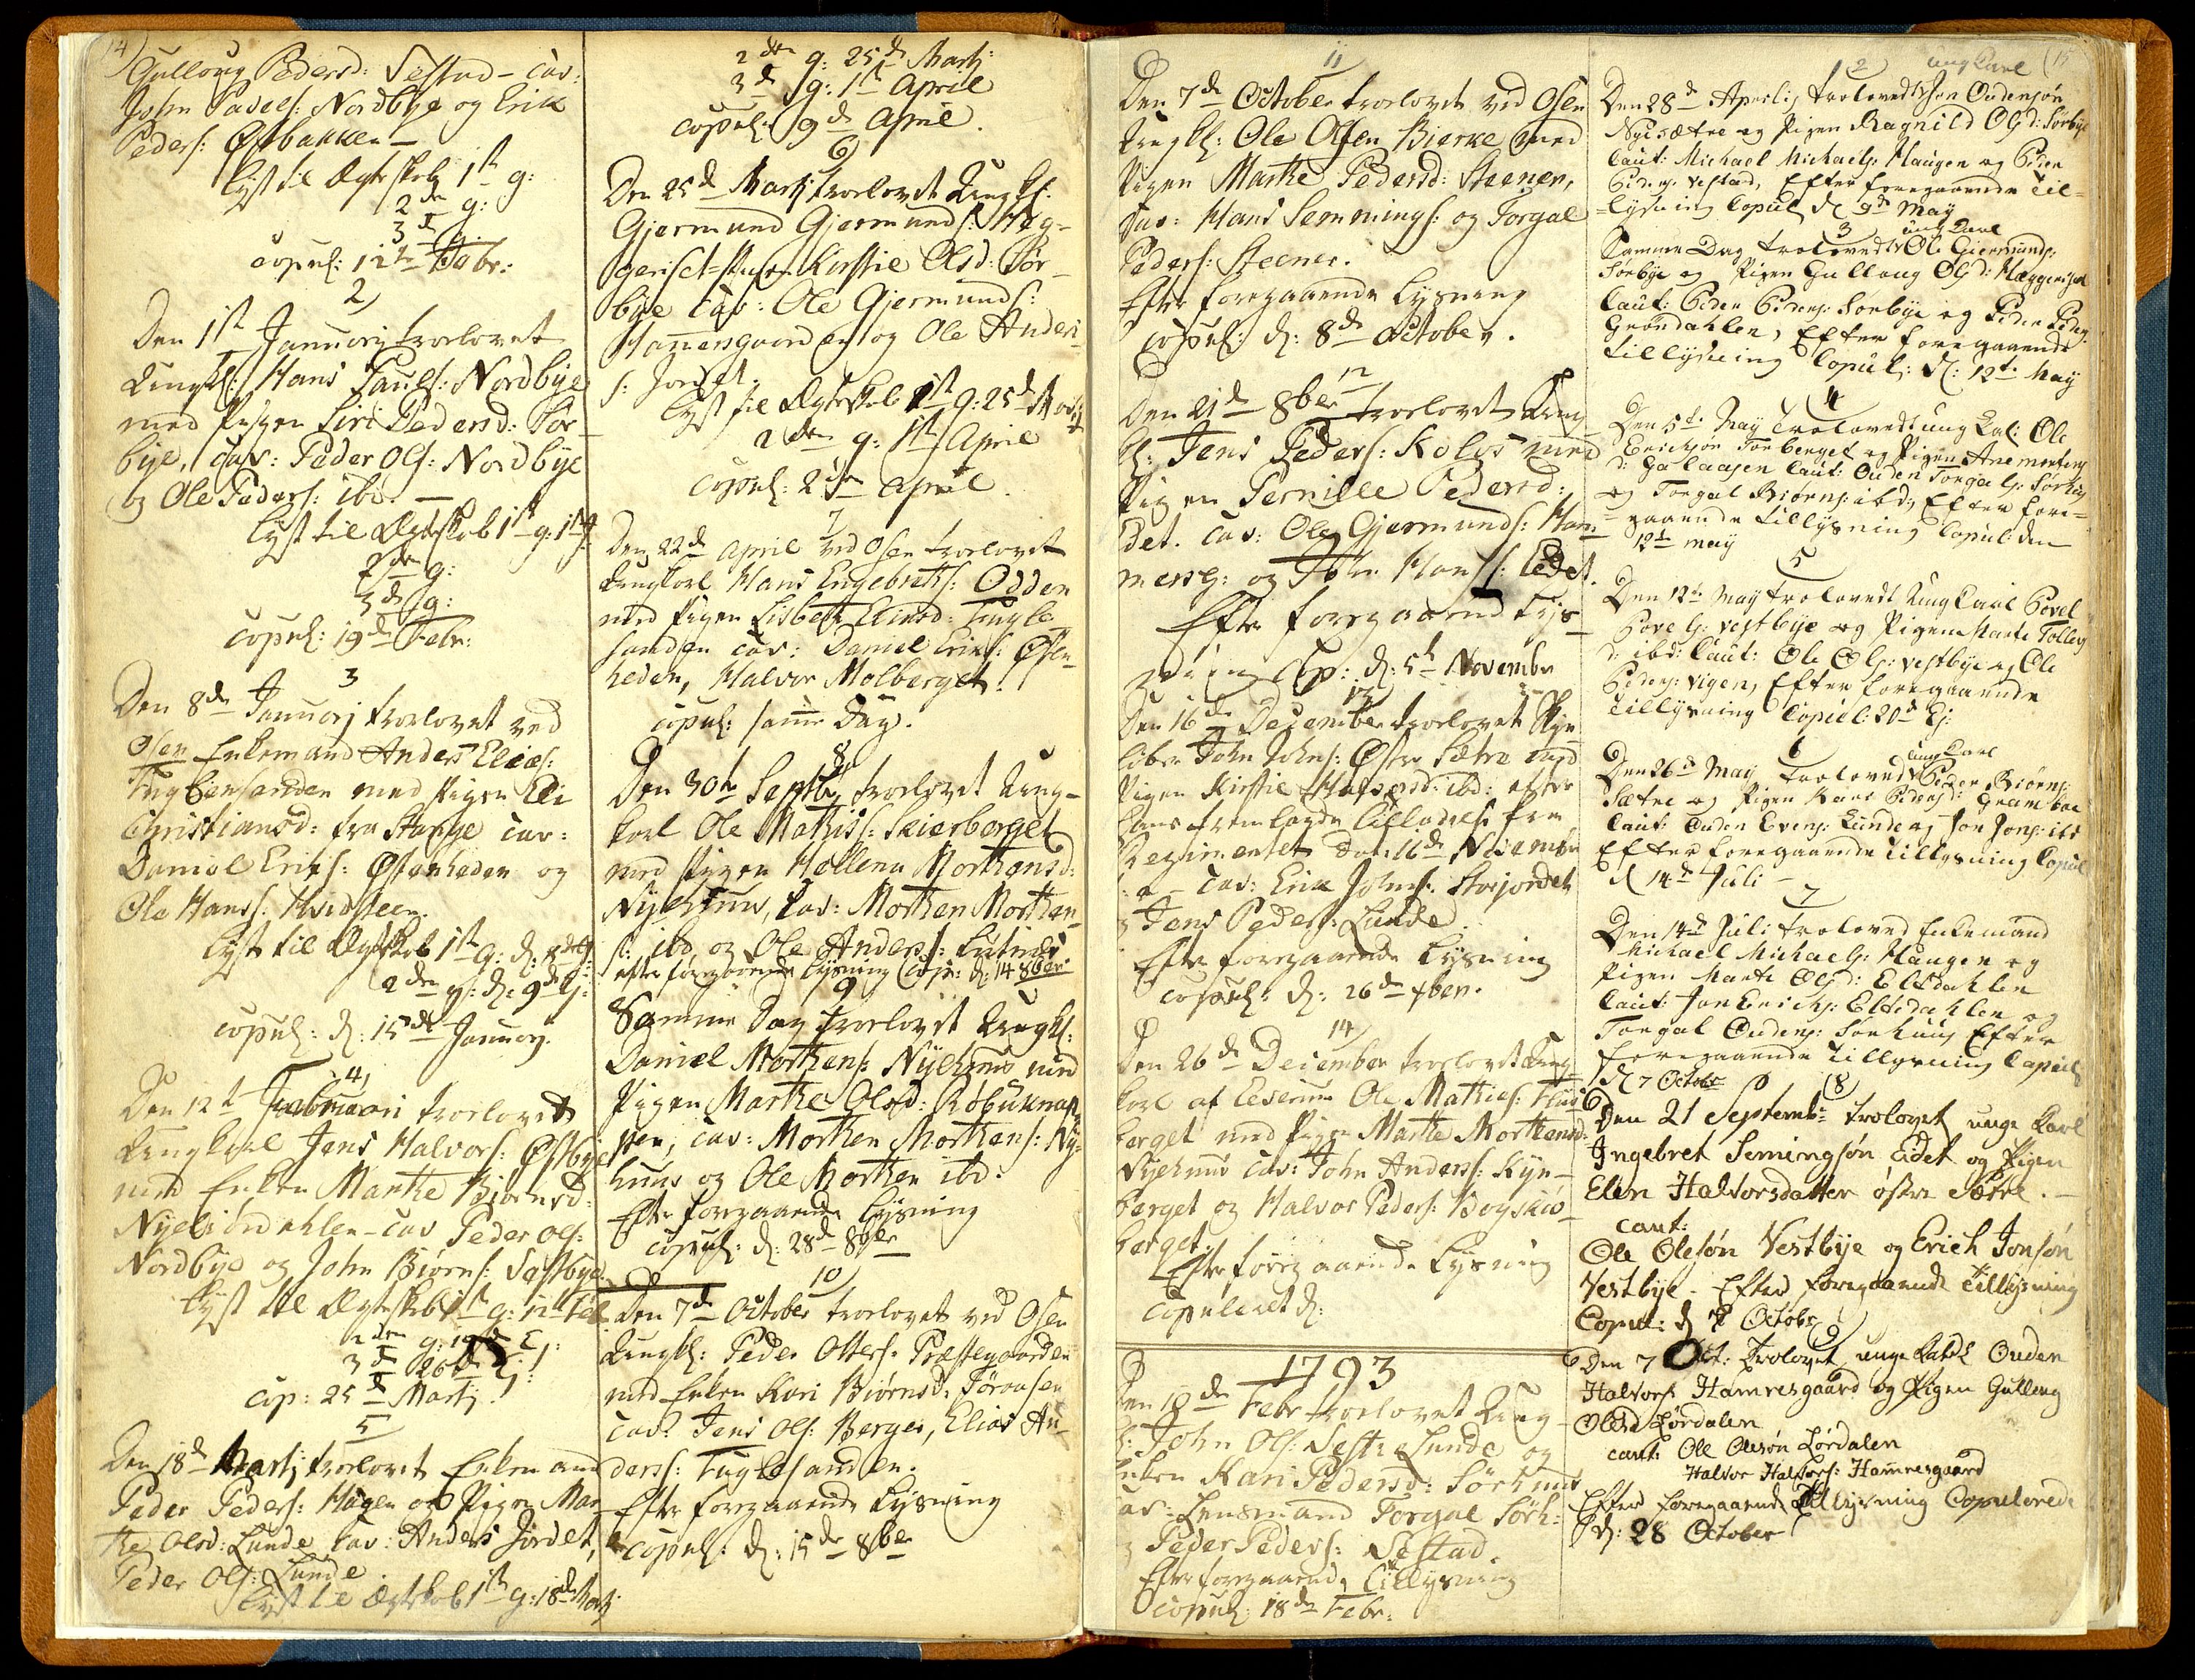 14)
Gulloug Pedersd: Sæstad - cav:
John Pavels: Nordbye og Erik
Peders: Østbakken —
lyst til Ægteskab 1st g:
2den g:
3d g:
copul: 12te Febr:
2
Den 1st Januarij trolovet
Ungkl: Hans Pauls: Nordbye
med Pigen Siri Pedersd: Sør-
bye, cav: Peder Ols: Nordbye
og Ole Peders: ibd. —
lyst til Ægteskab 1st g: 1st J.
2den g:
3d g:
copul: 19de Febr:
3
Den 8de Januarj trolovet ved
Osen Enkemand Anders Elias:
Fuglesanden med Pigen Eli
Christiansd: fra Stange cav:
Daniel Eriks: Østenheden og
Ole Hans: Hvidsteen.
lyst til Ægteskab 1st g: d: 8de J:
2den g: d: 9de Ej:
copul: d: 15de Januarj.
4
Den 12te Februari trolovet
Ungkarl Jens Halvors: Østbye
med Enken Marthe Biørnsd:
Nyelørdahlen - cav Peder Ols:
Nordbye og John Biørns: Sæstbye.
lyst til Ægteskab 1st g: 12te Feb
2den g: 19de E:
3d 26de Ej:
cop: 25d Martj
5
Den 18d Martj trolovet Enkemand
Peder Peders: Hagen og Pigen Mar-
the Olsd: Lunde cav: Anders Jordet,
Peder Ols: Lunde
lyst til Ægteskab 1st g: 18d Martj
2den g: 25d Martj:
3d g: 1st April
copul: 9d April.
6
Den 25d Martj trolovet Ungkl:
Gjermund Gjermunds: Heg-
geriset Pigen Kirstie Olsd: Sør-
bye cav: Ole Gjermunds:
Hammersgaarden og Ole Anders
s: Jordet.
lyst til Ægteskab 1st g: 25d Martj
2den g: 1st April
copul: 2den April.
7
Den 22d April ved Osen trolovet
Ungkarl Hans Engebrets: Odden
med Pigen Lisbeth Eliasd: Fugle-
sanden cav: Daniel Eriks: Østen-
heden, Halvor Molberget.
copul: samme Dag.
8
Den 30te Septbr trolovet Ung-
karl Ole Mathis: Skierberget
med Pigen Hellena Morthensd:
Nyehuus, Cav: Morthen Morthen-
s: ibd og Ole Anders: Lutnes
efter foregaaende lysning Cop: d: 14 8ber
9
Samme Dag trolovet Ungkl:
Daniel Morthens: Nyehuus med
Pigen Marthe Olsd: Røbuknap-
pen, cav: Morthen Morthens: Ny-
huus og Ole Morthen ibd.
Efter foregaaende Lysning
copul: d: 28d 8ber
10
Den 7de October trolovet ved Osen
Ungkl: Peder Otters: Præstegaarden
med Enken Kari Biørnsd: Søroesen
cav: Jens Ols: Berger, Elias An-
derss: Fuglesanden.
Efter foregaaende Lysning
copul: d: 15de 8ber
11
Den 7de October trolovet ved Osen
Ungkl: Ole Olsen Bierke med
Pigen Marthe Pedersd: Steenen,
Cav: Hans Semmings: og Torgal
Peders: Steener.
Efter foregaaende Lysning
copul: d: 8de October.
12
Den 21de 8ber trolovet Ung
kl: Jens Peders: Kolos med
Pigen Pernille Pedersd:
Edet. Cav: Ole Gjermunds: Ham-
mersg: og John Hans: Eedet.
Efter foregaaende Lys-
ning Cop: d: 5te November
13
Den 16de December trolovet Skie-
løber John Johns: Østre Sætre med
Pigen Kirstie Halvorsd: ibd: efter
hans fremlagde Tilladelse fra
Regimentet Dat: 16de Novembr
cav: Erik Johns: Storjordet
og Jens Peders: Lunde
Efter foregaaende Lysning
copul: d: 26de Xber.
14
Den 26de December trolovet Ung
karl af Elverum Ole Mathies: Huus
berget med Pigen Marthe Morthensd:
Nyehuus Cav: John Anderss: Ryn-
berget og Halvor Peders: Bøyskio-
berget.
Efter foregaaende Lysning
copuleret d:
1793
Den 18de Febr trolovet Ung
k: John Ols: Sæstre Lunde og
Enken Kari Pedersd: Sørhuus
cav: Lensmand Torgal Sørh:
og Peder Peders: Sæstad.
Efter foregaaende Tillysning
copul: 18de Febr:
(15
2
ung Karl
Den 28d Aprilis trolovedt Jon Oudensøn
Nysætre og Pigen Ragnild Olsd: Sørbye
Caut: Michael Michaels: Haugen og Peder
Peders: Vestad, Efter foregaaende Til-
lysning Copul d 9d May
3
ung Karl
Samme Dag trolovedt Ole Giermunds:
Sørbye og Pigen Gulloug Olsd: Hæggeriset
Caut: Peder Peders: Sørbye og Peder Peders:
Grøndahlen, Efter foregaaende
tillysning Copul: d: 12t May
4
Den 5d May Trolovedt ung Kal: Ole
Erichsøn Torberget og Pigen Ane Mortens
d: Galaasen Caut: Ouden Torgals: Sørhuus
og Torgal Biørns: ibd, Efter fore-
gaaende tillysning Copul: den
12d May
5
Den 12d May trolovedt Ung Karl Povel
Povels: Vestbye og Pigen Marte Tollefs
d: ibd: Caut: Ole Ols: Vestbye og Ole
Peders: Vigen, Efter foregaaende
Tillysning Copul: 20d Ej:
6
ung Karl
Den 26d May trolovedt Peder Biørns:
Sætre og Pigen Kari Pedersd: Grambæe
Caut: Ouden Evens: Lunde og Jon Jons: ibd
Efter foregaaende Tillysning Copul
d 14d Juli —
7
Den 14d Juli troloved Enkemand
Michael Michaels: Haugen og
Pigen Marte Olsd: Eltdahlen
Caut: Jon Erichs: Eltdahlen og
Torgal Oudens: Sørhuus Efter
foregaaende Tillysning Copul
d 7 Octobr
8
Den 21 Septembr trolovet unge Karl
Ingebret Semingsøn Eidet og Pigen
Elen Halvorsdatter østre Sætre. —
caut:
Ole Olesøn Vestbye og Erich Jonsøn
Vestbye - Efter foregaaende tillysning
Copul: d 7 Octobr
9
Den 7 Oct: Trolovet unge Karl Ouden
Halvors: Hamresgaard og Pigen Gulloug
Olesd Lørdalen
caut: Ole Olesøn Lørdalen
Halvor Halvors: Hamresgaard
Efter foregaaende Tillysning Copulerede
d: 28 October